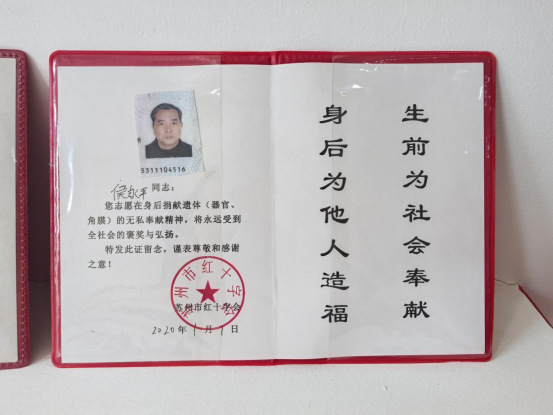 5311104516
侯永平 同志:
您志愿在身后捐献遗体（器官、
角膜）的无私奉献精神，将永远受到
全社会的褒奖与弘扬。
特发此证留念，谨表尊敬和感谢
之意！
苏州市红十字会
苏州市红十字会
2020年1月1日
生前为社会奉献
身后为他人造福